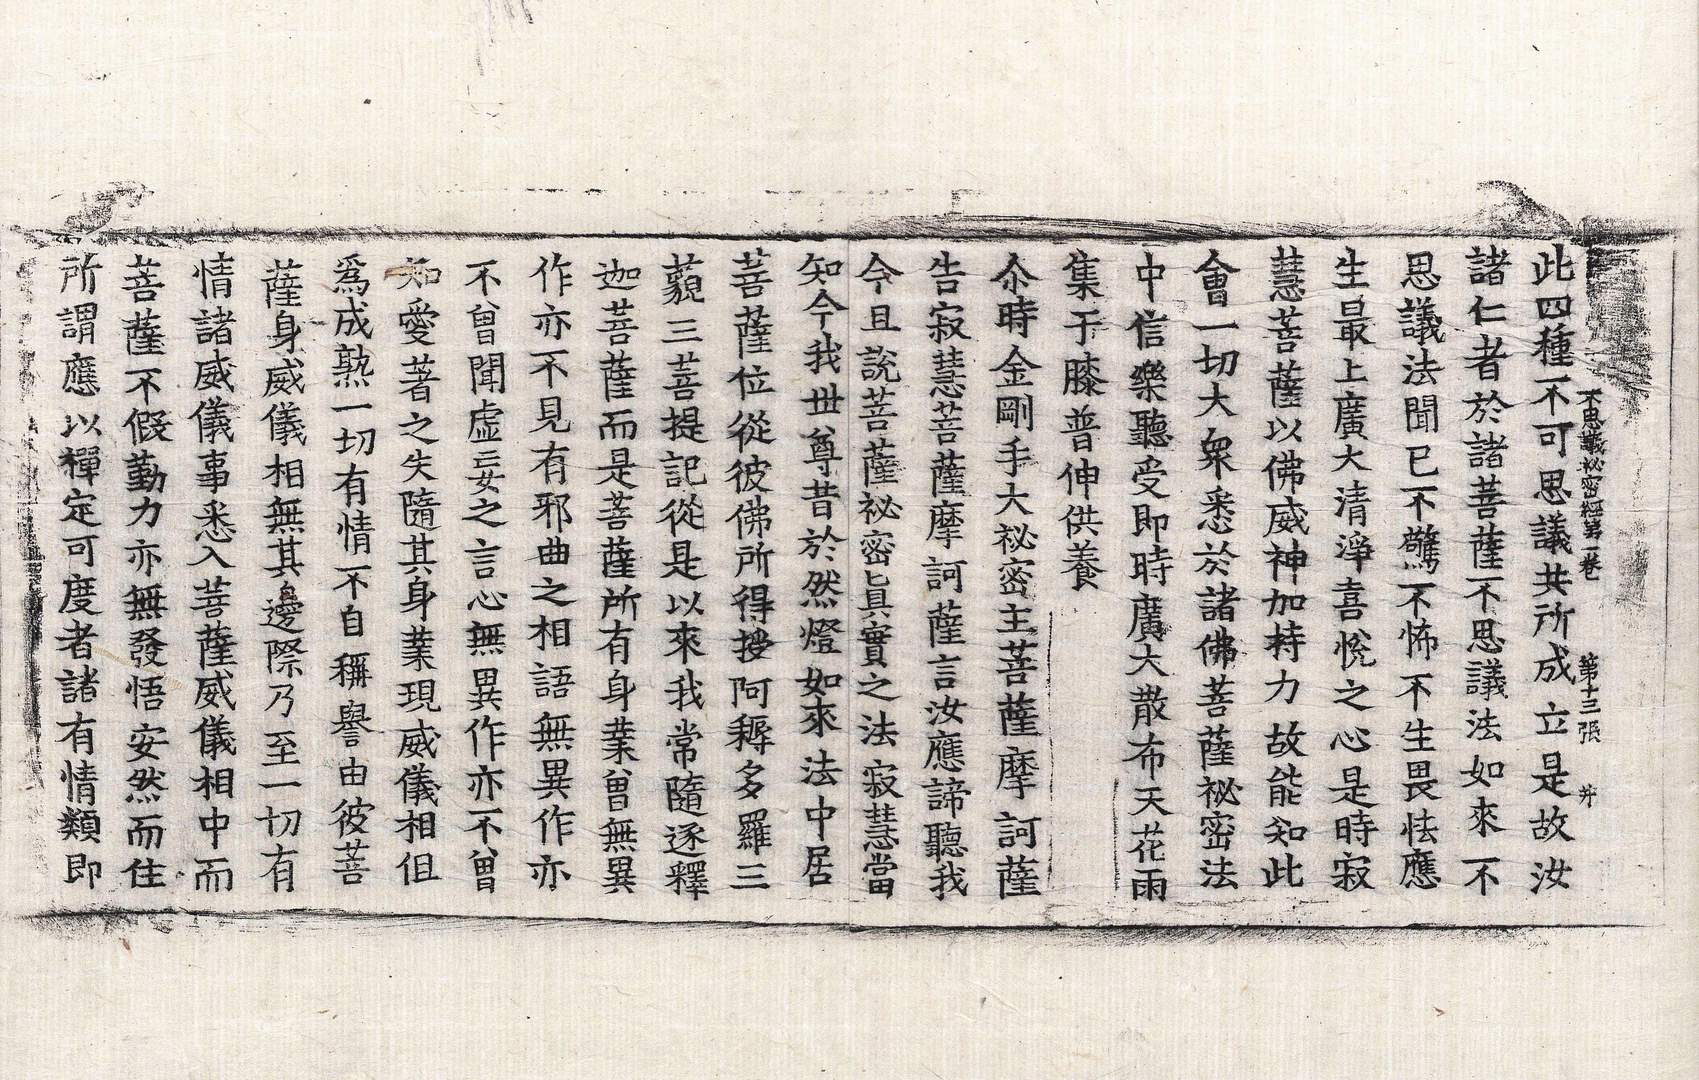 不思議祕密經第二卷　第十三張
此四種不可思議共所成立是故汝
諸仁者於諸菩薩不思議法如來不
思議法聞已不驚不怖不生畏怯應
生最上廣大清淨喜悅之心是時寂
慧菩薩以佛威神加持力故能知此
會一切大衆悉於諸佛菩薩祕密法
中信樂聽受即時廣大散布天花雨
集于膝普伸供養
尒時金剛手大祕密主菩薩摩訶薩
告寂慧菩薩摩訶薩言汝應諦聽我
今且說菩薩祕密眞實之法寂慧當
知今我世尊昔於然燈如來法中居
菩薩位從彼佛所得授阿耨多羅三
藐三菩提記從是以來我常隨逐釋
迦菩薩而是菩薩所有身業曾無異
作亦不見有邪曲之相語無異作亦
不曾聞虛妄之言心無異作亦不曾
知愛著之失隨其身業現威儀相但
爲成熟一切有情不自稱譽由彼菩
薩身威儀相無其邊際乃至一切有
情諸威儀事悉入菩薩威儀相中而
菩薩不假勤力亦無發悟安然而住
所謂應以禪定可度者諸有情類即